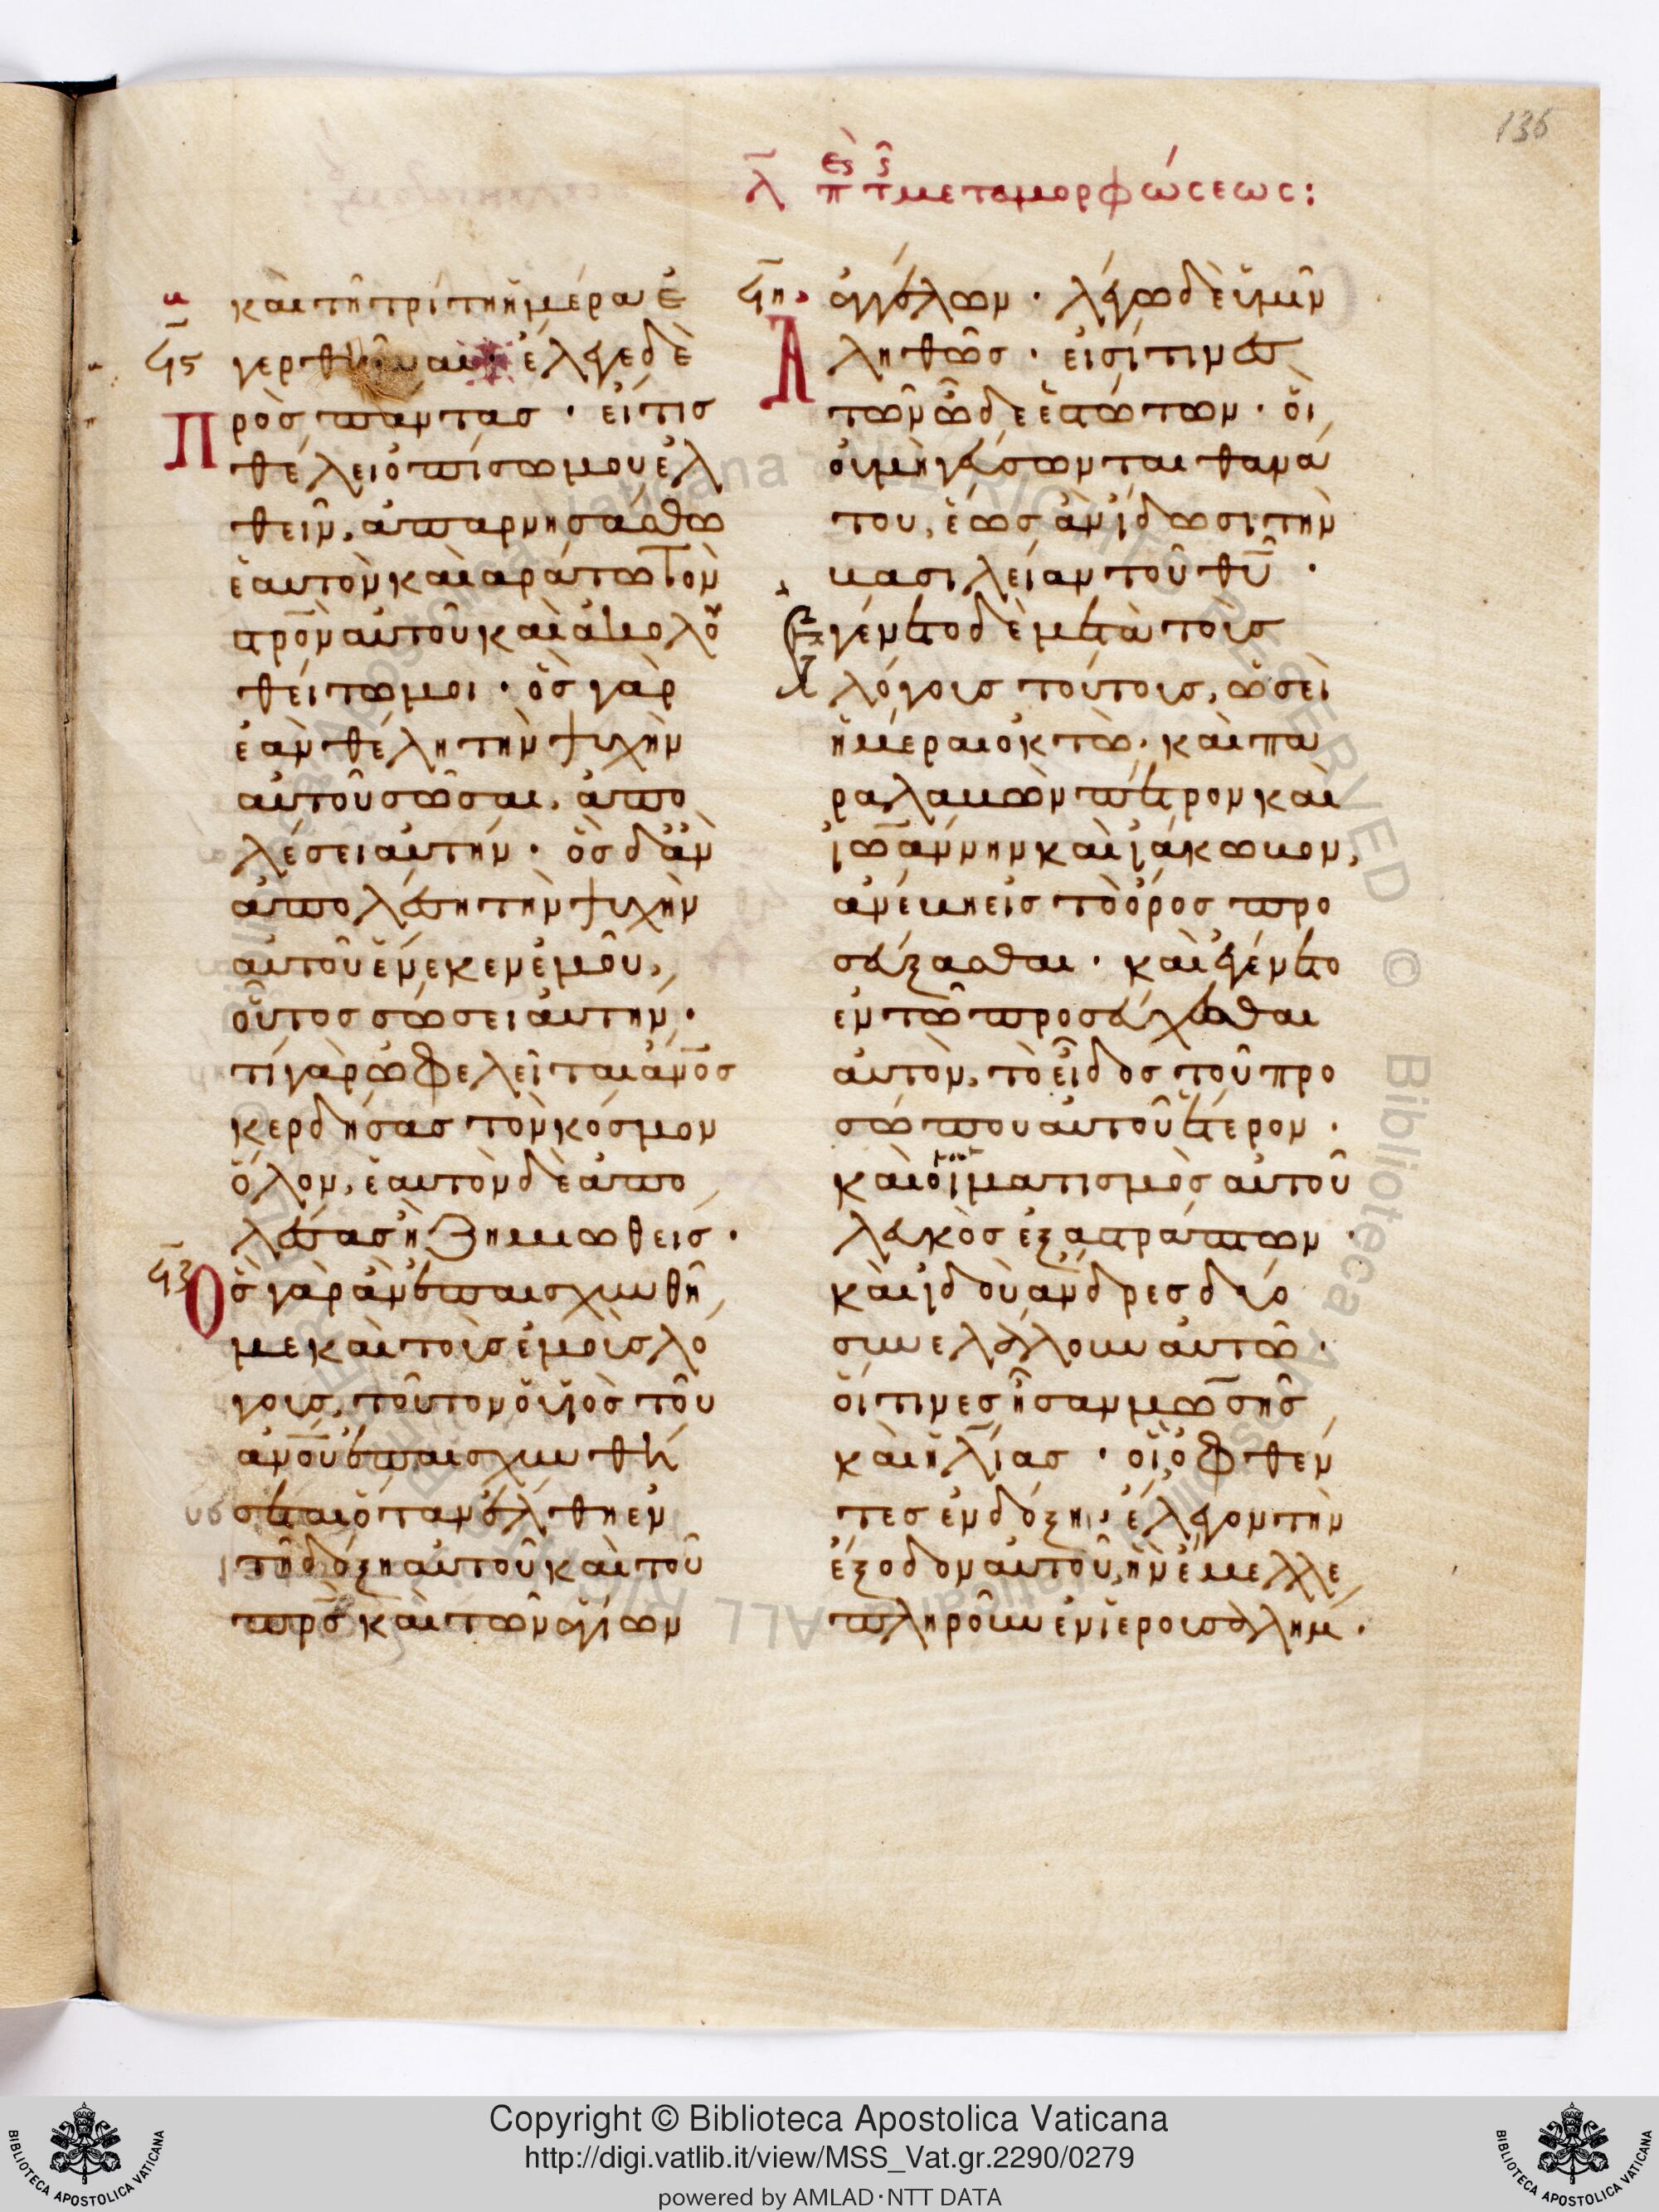 136
λ̄ περὶ τῆς μεταμορφώσεως:
καὶ τῆ τρίτη ἡμέρα ἐ
ϟϛ γερθῆναι· ἔλεγε δὲ
Πρὸς πάντας· εἴ τις
θέλει ὀπίσω μου ἐλ
θεῖν, ἀπαρνησάσθω
ἑαυτὸν καὶ ἀράτω τὸν
σ̅ρ̅ο̅ν̅ αὐτοῦ καὶ ἀκολου
θείτω μοι· ὃς γὰρ
ἐὰν θέλη τὴν ψυχὴν
αὐτοῦ σῶσαι, ἀπο
λέσει αὐτήν· ὃς δ' ἂν
ἀπολέση τὴν ψυχὴν
αὐτοῦ ἕνεκεν ἐμοῦ,
οὗτος σώσει αὐτήν·
τί γὰρ ὠφελεῖται α̅ν̅ο̅ς̅
κερδήσας τὸν κόσμον
ὅλον, ἑαυτὸν δὲ ἀπο
λέσας ἢ ζημιωθείς·
ϟζ Ὃς γὰρ ἂν ἐπαισχυνθῆ
με καὶ τοὺς ἐμοὺς λό
γους, τοῦτον ὁ υἱὸς τοῦ
α̅ν̅ο̅υ̅ ἐπαισχυνθή
σεται ὅταν ἔλθη ἐν
τῆ δόξη αὐτοῦ καὶ τοῦ
π̅ρ̅ς̅ καὶ τῶν ἁγίων
ϟη ἀγγέλων· λέγω δὲ ὑμῖν
Ἀληθῶς· εἰσί τινες
τῶν ὧδε ἑστώτων· οἳ
οὐ μὴ γεύσωνται θανά
του, ἕως ἂν ἴδωσι τὴν
βασιλείαν τοῦ θ̅υ̅·
Ἐγένετο δὲ μετὰ τοὺς
λόγους τούτους, ὡσεὶ
ἡμέραι ὀκτώ· καὶ πα
ραλαβὼν πέτρον καὶ
ἰωάννην καὶ ἰάκωβον,
ἀνέβη εἰς τὸ ὄρος προ
σεύξασθαι· καὶ ἐγένετο
ἐν τῶ προσεύχεσθαι
αὐτὸν, τὸ εἶδος τοῦ προ
σώπου αὐτοῦ ἕτερον·
καὶ ὁ ἱματισμὸς αὐτοῦ
λευκὸς ἐξαστράπτων·
καὶ ἰδοὺ ἄνδρες δύο
συνελάλουν αὐτῶ·
οἵτινες ἦσαν μωσῆς
καὶ ἠλίας· οἳ ὀφθέν
τες ἐν δόξη, ἔλεγον τὴν
ἔξοδον αὐτοῦ, ἣν ἔμελλε
πληροῦν ἐν ἱερουσαλήμ·
Copyright © Biblioteca Apostolica Vaticana
http://digi.vatlib.it/view/MSS_Vat.gr.2290/0279
powered by AMLAD·NTT DATA
BIBLIOTECA APOSTOLICA VATICANA
BIBLIOTECA APOSTOLICA VATICANA